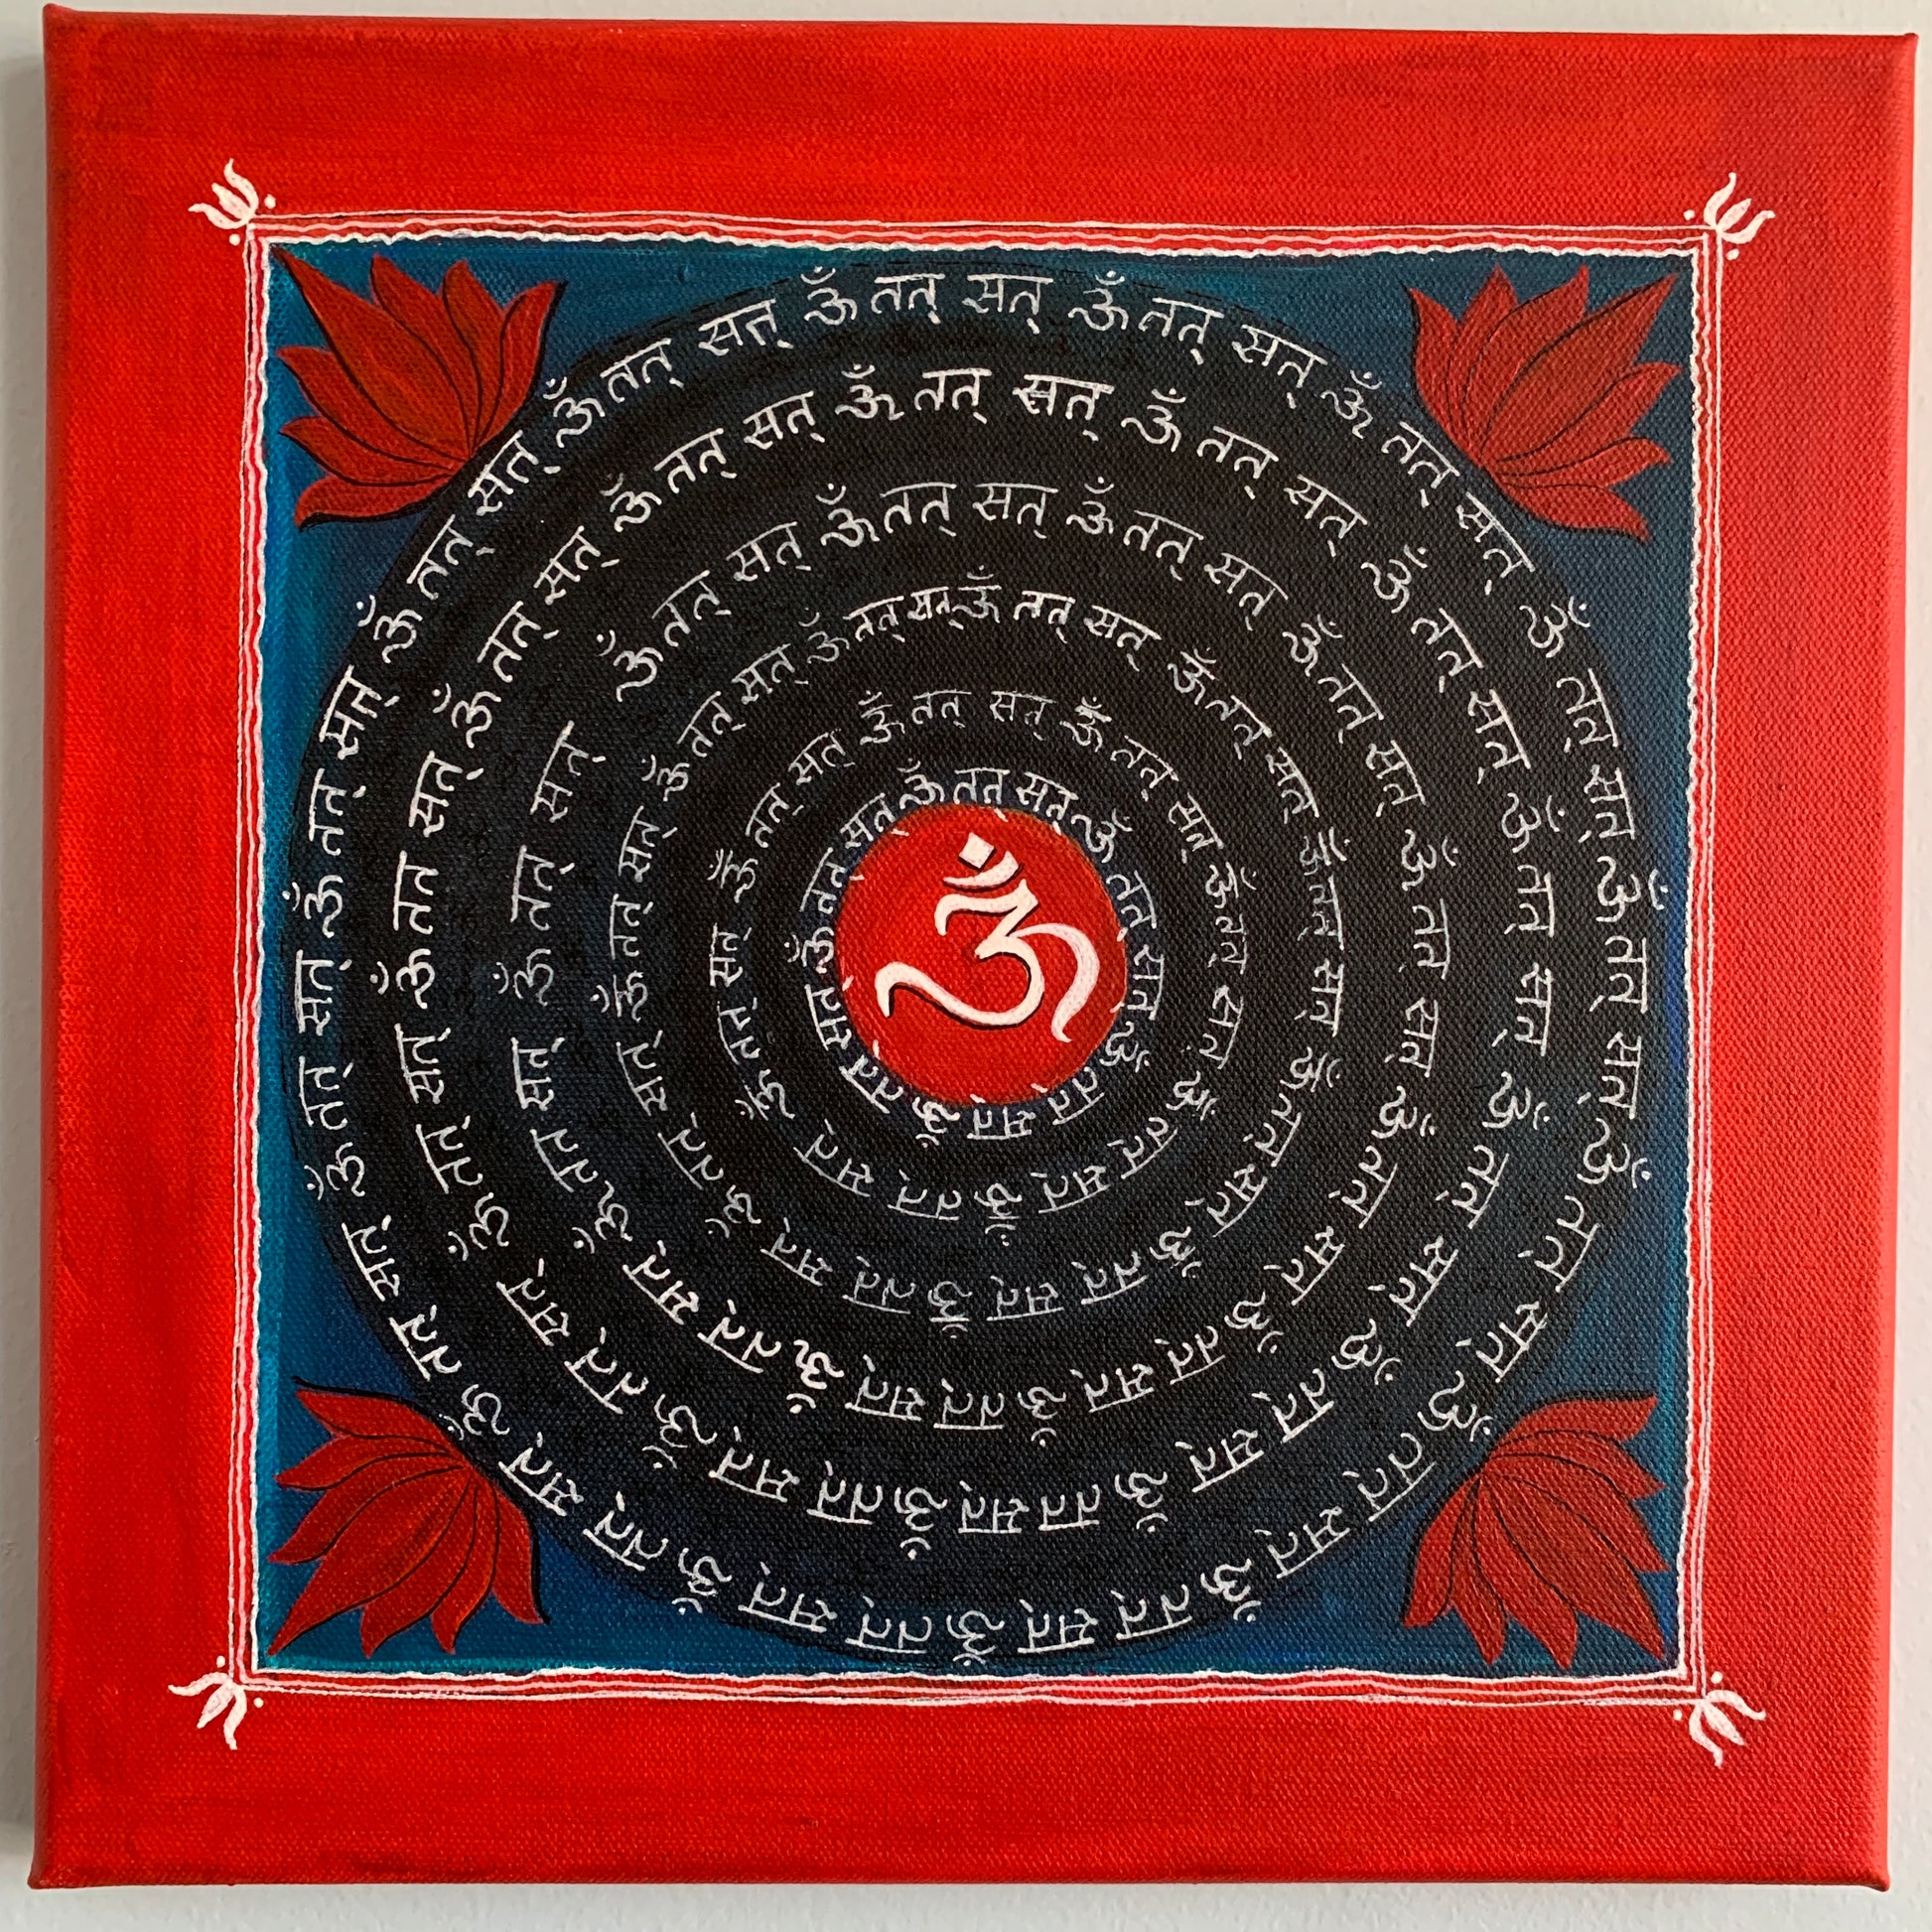 ॐ तत् सत् ॐ तत् सत् ॐ तत् सत् ॐ तत् सत् ॐ तत् सत् ॐ तत् सत् ॐ तत् सत् ॐ तत् सत् ॐ तत् सत् ॐ तत् सत् ॐ तत् सत् ॐ तत् सत् ॐ तत् सत् ॐ तत् सत् ॐ तत् सत्
ॐ तत् सत् ॐ तत् सत् ॐ तत् सत् ॐ तत् सत् ॐ तत् सत् ॐ तत् सत् ॐ तत् सत् ॐ तत् सत् ॐ तत् सत् ॐ तत् सत् ॐ तत् सत् ॐ तत् सत् ॐ तत् सत्
ॐ तत् सत् ॐ तत् सत् ॐ तत् सत् ॐ तत् सत् ॐ तत् सत् ॐ तत् सत् ॐ तत् सत् ॐ तत् सत् ॐ तत् सत् ॐ तत् सत् ॐ तत् सत्
ॐ तत् सत् ॐ तत् सत् ॐ तत् सत् ॐ तत् सत् ॐ तत् सत् ॐ तत् सत् ॐ तत् सत् ॐ तत् सत् ॐ तत् सत् ॐ तत् सत्
ॐ तत् सत् ॐ तत् सत् ॐ तत् सत् ॐ तत् सत् ॐ तत् सत् ॐ तत् सत् ॐ तत् सत्
ॐ तत् सत् ॐ तत् सत् ॐ तत् सत् ॐ तत् सत् ॐ तत् सत्
ॐ